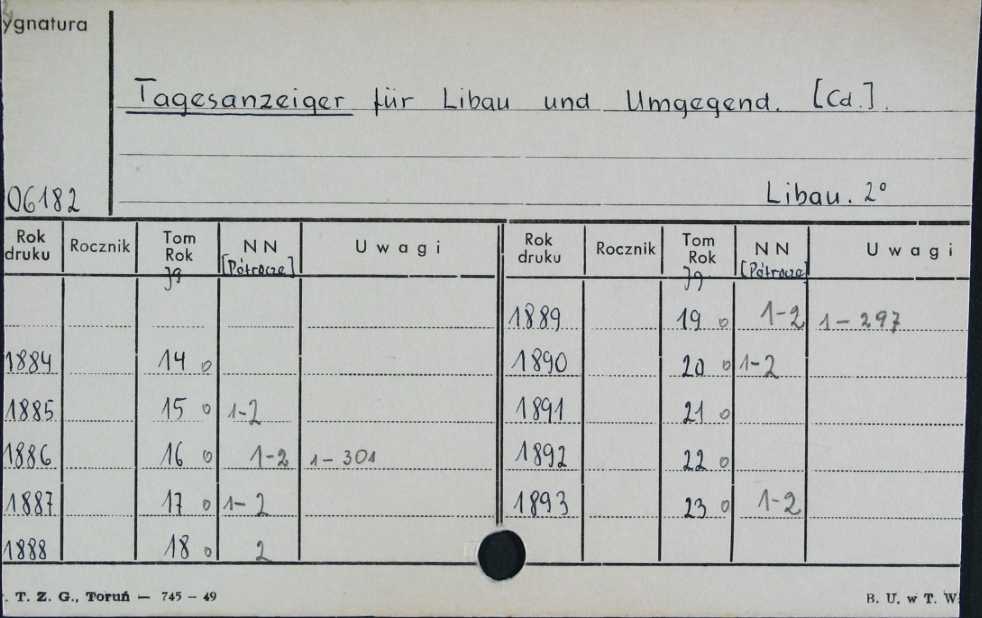 ygnatura
Tagesanzeiger für Libau und Umgegend. [Cd.].
06182
Libau. 2°
Rok druku Rocznik Tom Rok Jg NN [Półrocze] Uwagi Rok druku Rocznik Tom Rok Jg NN [Półrocze] Uwagi
1889 19 0 1-2 1-297
1884 14 0 1890 20 0 1-2
1885 15 0 1-2 1891 21 0
1886 16 0 1-2 1-301 1892 22 0
1887 17 0 1-2 1893 23 0 1-2
1888 18 0 2
. T. Z. G., Toruń — 745 — 49
B. U. w T. W